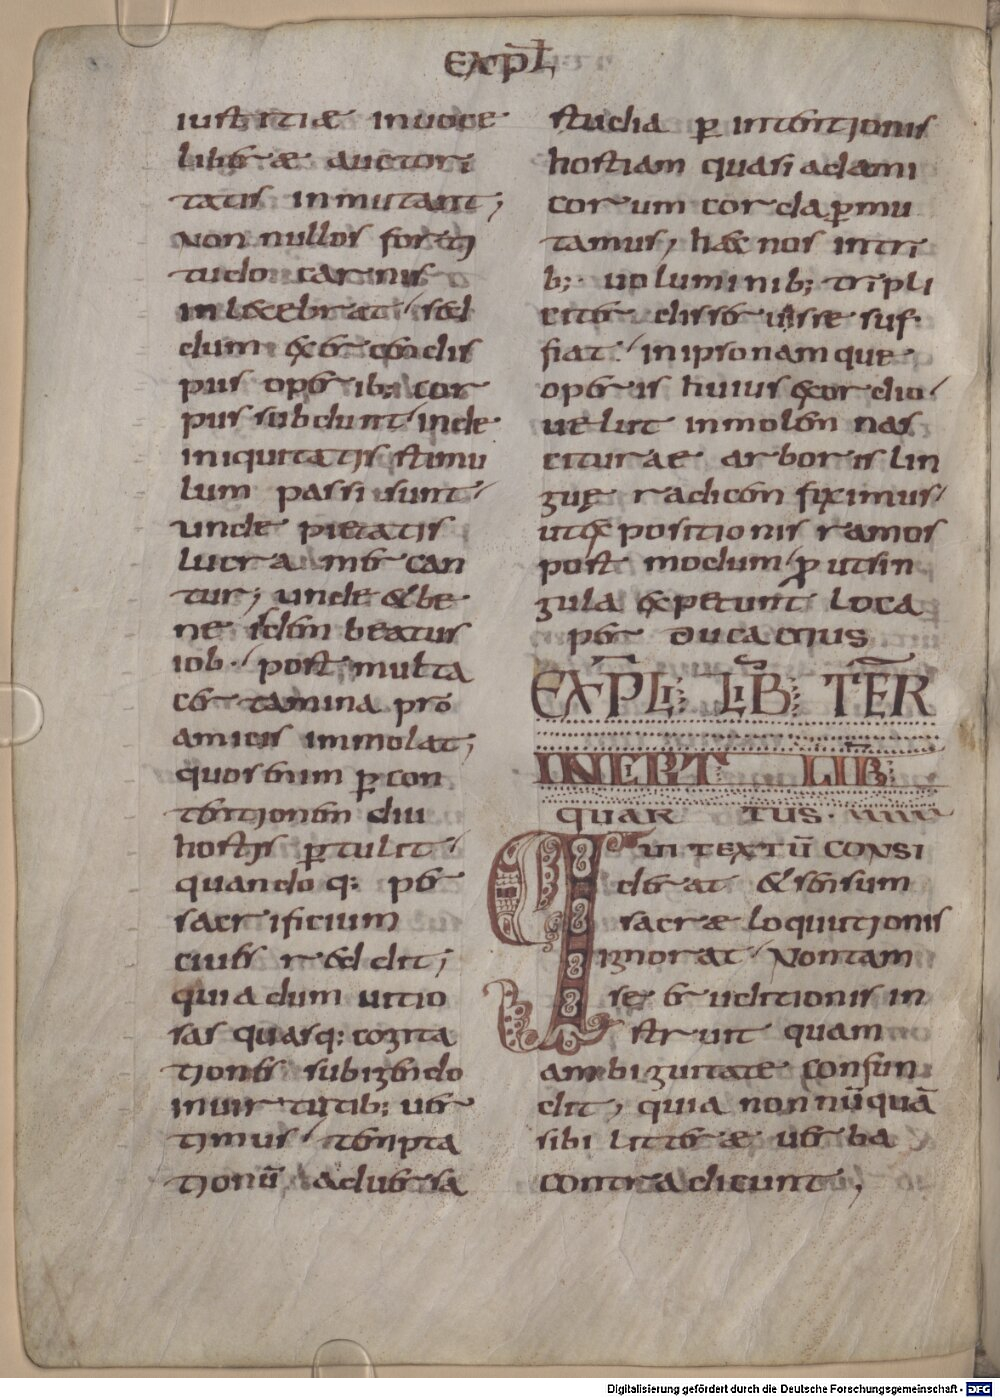 expl̅
iustitiæ in uoce
liberæ auctori
tatis inmutant;
Non nullos forti
tudo carnis
inlecebrat, sed
dum exercendis
pus operib; cor
pus subdunt, inde
iniquitatis stimu
lum passi sunt,
unde pietatis
lucra mercan
tur; unde & be
ne idem beatus
iob, post multa
certamina pro
amicis immolat;
quos enim per con
tentionem diu
hostis pertulit,
quandoq; per
sacrificium
ciues reddit;
quia dum uitio
sas quasq; cogita
tiones subigendo
in uirtutib; uer
timus, tempta
tionū aduersa
studia ꝑ intentionis
hostiam quasi ad ami
corum corda ꝑmu
tamus, hæc nos in tri
b; uoluminib; tripli
citer disseruisse suf
fiat, in ipso namque
operis huius exordio,
uelut in molem nas
citurae arboris lin
guę radicem fiximus,
ut expositionis ramos
post modum, ꝓut sin
gula expetunt loca
per ducacius
EXPL̅: LIB: TER
INCPT LIB
QUAR TUS. IIII
Qui textū consi
derat & sensum
sacræ loquutionis
ignorat, Non tam
se eruditionis in
struit quam
ambiguitate confun
dit, quia non nūquā
sibi litteræ uerba
contradicunt;
Digitalisierung gefördert durch die Deutsche Forschungsgemeinschaft - DFG